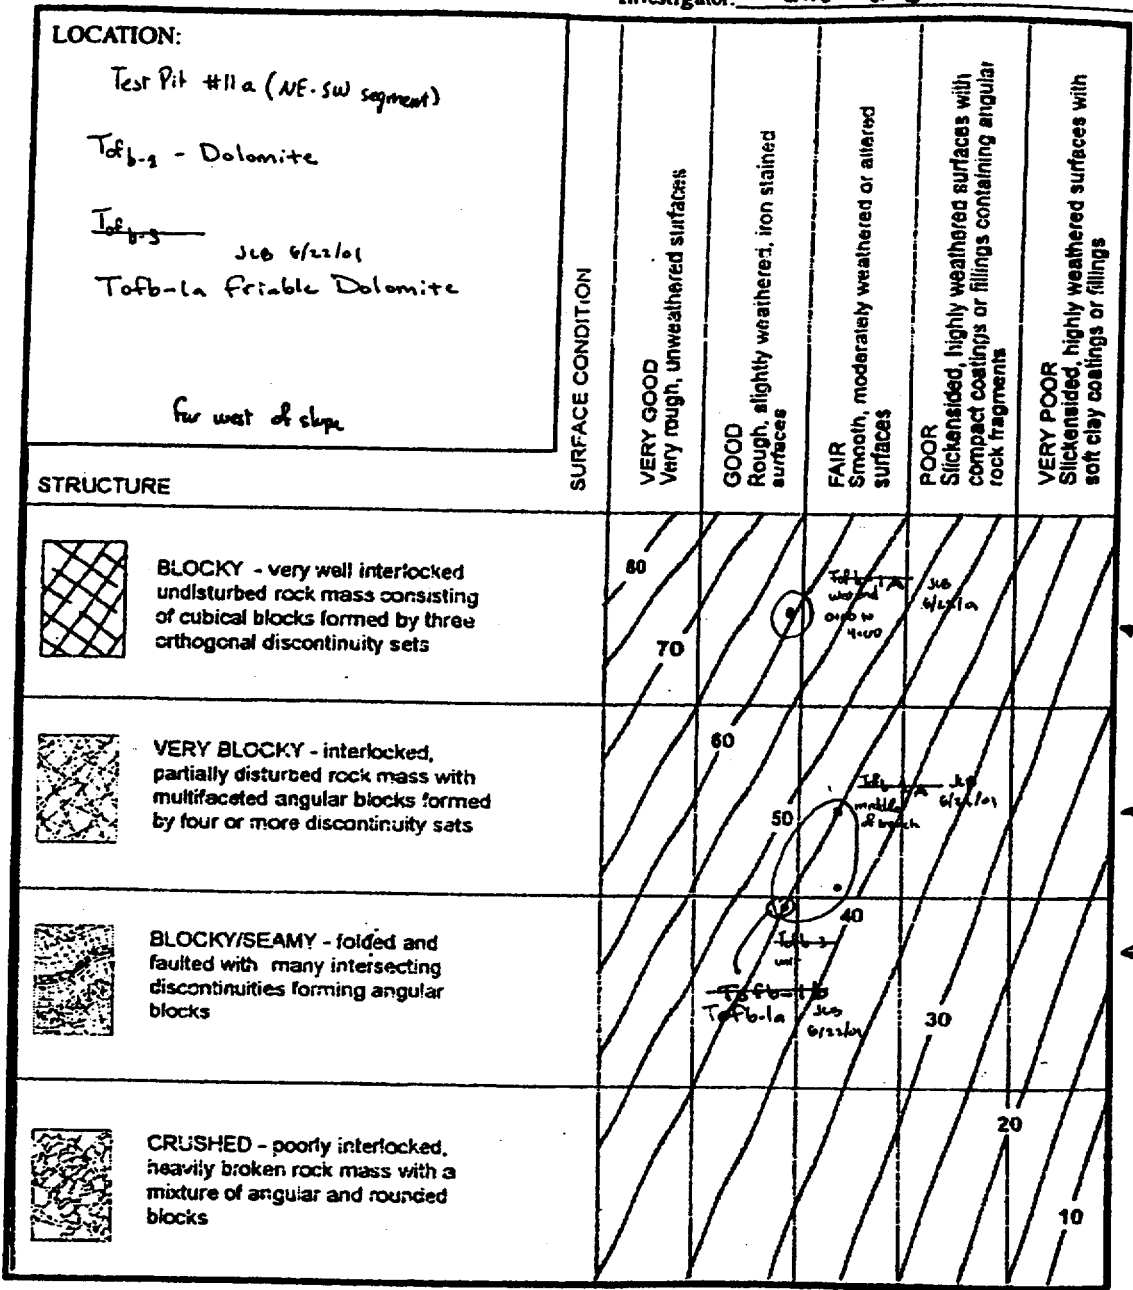 Investigator:
LOCATION:
Test Pit #11a (NE-SW segment)
Tofb-1 - Dolomite
Tofb-3
JLB 6/22/01
Tofb-1a Friable Dolomite
far west of slope
STRUCTURE
SURFACE CONDITION
VERY GOOD
Very rough, unweathered surfaces
GOOD
Rough, slightly weathered, iron stained
surfaces
FAIR
Smooth, moderately weathered or altered
surfaces
POOR
Slickensided, highly weathered surfaces with
compact coatings or fillings containing angular
rock fragments
VERY POOR
Slickensided, highly weathered surfaces with
soft clay coatings or fillings
BLOCKY - very well interlocked
undisturbed rock mass consisting
of cubical blocks formed by three
orthogonal discontinuity sets
80
70
Tofb-1A
west end
0+00 to
4+00
JLB
VERY BLOCKY - interlocked,
partially disturbed rock mass with
multifaceted angular blocks formed
by four or more discontinuity sets
60
50
JLB
6/22/01
middle
of trench
BLOCKY/SEAMY - folded and
faulted with many intersecting
discontinuities forming angular
blocks
40
Tofb-3
Tofb-1b
Tofb-1a
JLB
6/22/01
30
CRUSHED - poorly interlocked,
heavily broken rock mass with a
mixture of angular and rounded
blocks
20
10